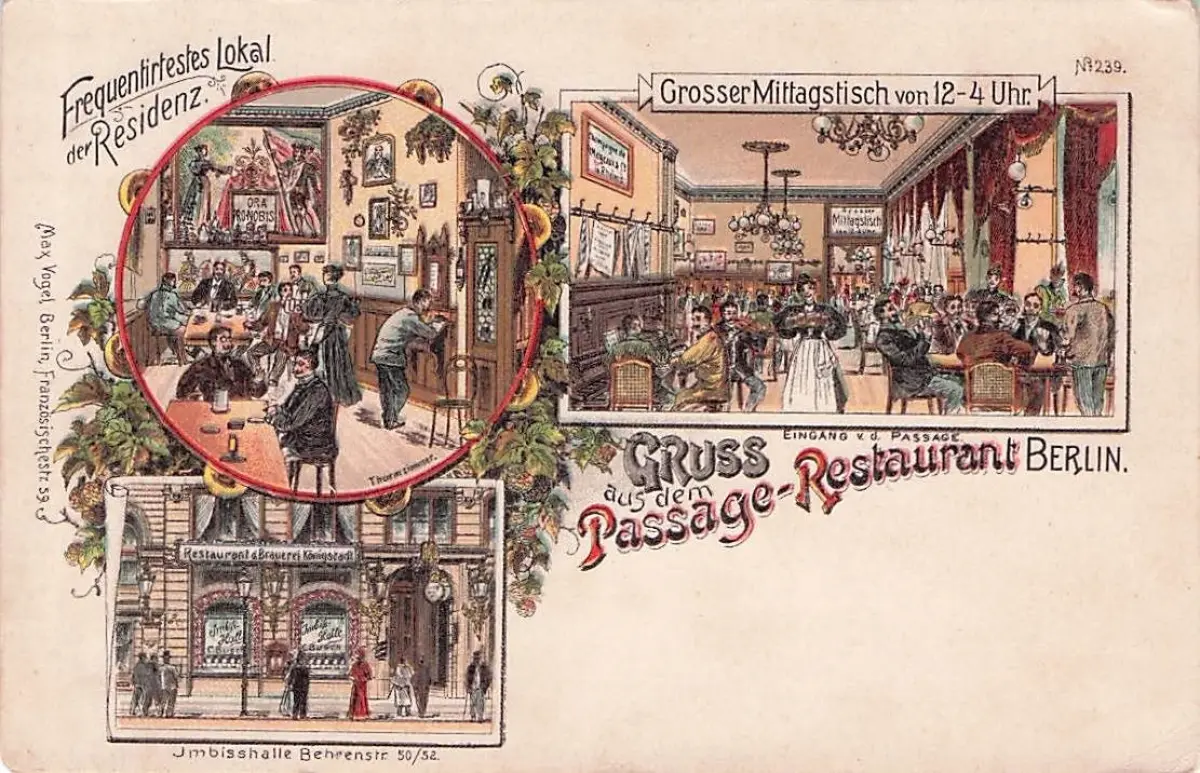 Frequentirtestes Lokal
der Residenz.
No 239.
Grosser Mittagstisch von 12-4 Uhr.
ORA
PRO NOBIS
Grosser
Mittagstisch
Thurmzimmer.
EINGANG v. d. PASSAGE
GRUSS
aus dem
Passage-Restaurant BERLIN.
Max Vogel, Berlin, Französischestr.
Restaurant d. Brauerei Königstadt
Imbiss
Halle
Imbiss
Halle
Jmbisshalle Behrenstr. 50/52.